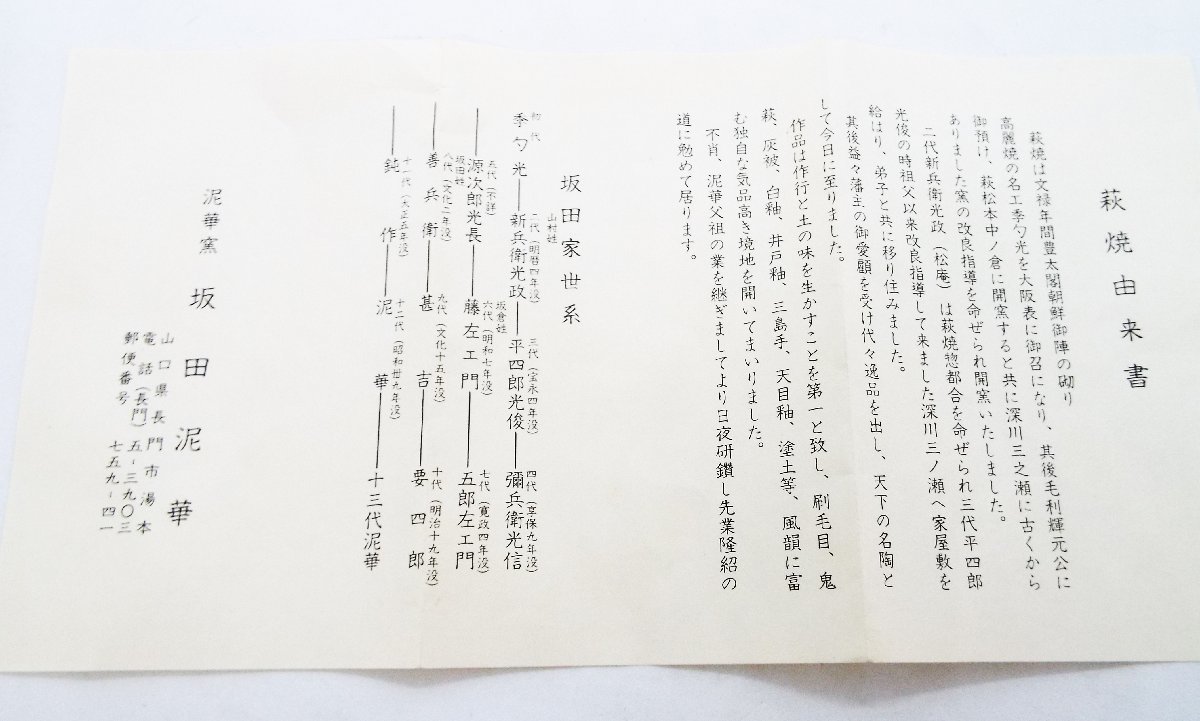 萩焼由来書
萩焼は文禄年間豊太閤朝鮮御陣の砌り
高麗焼の名工李勺光を大阪表に御召になり、其後毛利輝元公に
御預け、萩松本中ノ倉に開窯すると共に深川三之瀬に古くから
ありました窯の改良指導を命ぜられ開窯いたしました。
二代新兵衛光政（松庵）は萩焼惣都合を命ぜられ三代平四郎
光俊の時祖父以来改良指導して来ました深川三ノ瀬へ家屋敷を
給はり、弟子と共に移り住みました。
其後益々藩主の御愛顧を受け代々逸品を出し、天下の名陶と
して今日に至りました。
作品は作行と土の味を生かすことを第一と致し、刷毛目、鬼
萩、灰被、白釉、井戸釉、三島手、天目釉、塗土等、風韻に富
む独自な気品高き境地を開いてまいりました。
不肖、泥華父祖の業を継ぎましてより日夜研鑽し先業隆紹の
道に勉めて居ります。
坂田家世系
山村姓
初代 二代（明暦四年没） 三代（宝永四年没） 四代（享保九年没）
李勺光 新兵衛光政 平四郎光俊 彌兵衛光信
坂倉姓
五代（不詳） 六代（明和七年没） 七代（寛政四年没）
源次郎光長 藤左エ門 五郎左エ門
坂田姓
八代（文化二年没） 九代（文化十五年没） 十代（明治十九年没）
善兵衛 甚吉 要四郎
十一代（大正五年没） 十二代（昭和卅九年没）
鈍作 泥華 十三代泥華
泥華窯 坂田泥華
山口県長門市湯本
電話（長門）五-三九〇三
郵便番号 七五九-四一